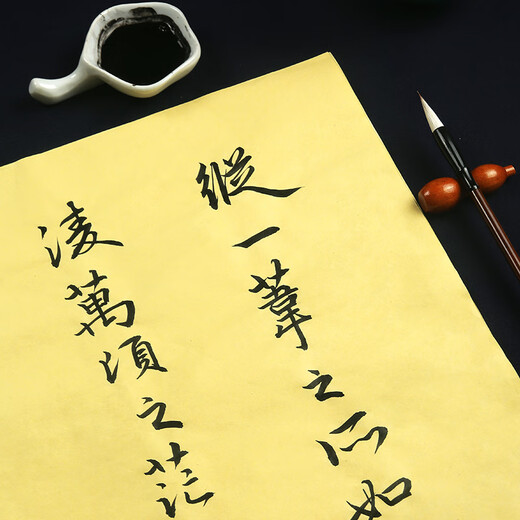 縱一葦之所如
淩萬頃之茫